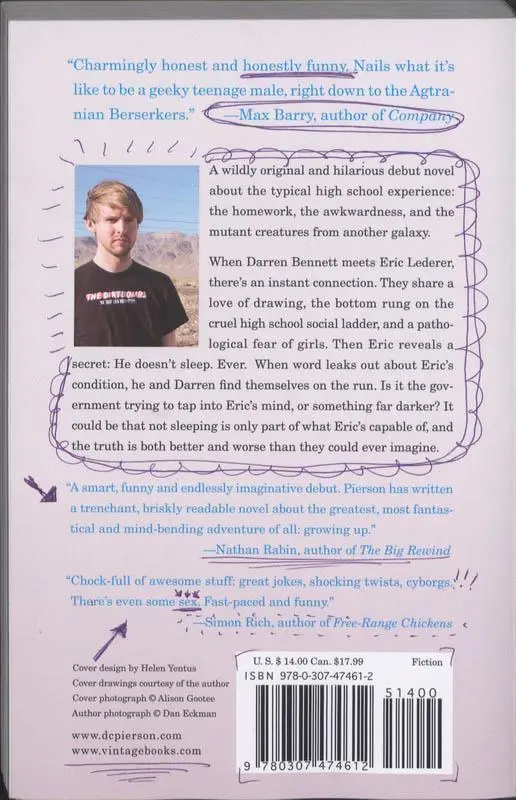 “Charmingly honest and honestly funny. Nails what it’s
like to be a geeky teenage male, right down to the Agtra-
nian Berserkers.” —Max Barry, author of Company
A wildly original and hilarious debut novel
about the typical high school experience:
the homework, the awkwardness, and the
mutant creatures from another galaxy.
When Darren Bennett meets Eric Lederer,
there’s an instant connection. They share a
love of drawing, the bottom rung on the
cruel high school social ladder, and a patho-
logical fear of girls. Then Eric reveals a
secret: He doesn’t sleep. Ever. When word leaks out about Eric’s
condition, he and Darren find themselves on the run. Is it the gov-
ernment trying to tap into Eric’s mind, or something far darker? It
could be that not sleeping is only part of what Eric’s capable of, and
the truth is both better and worse than they could ever imagine.
THE DIRTBOMBS
“A smart, funny and endlessly imaginative debut. Pierson has written
a trenchant, briskly readable novel about the greatest, most fantas-
tical and mind-bending adventure of all: growing up.”
—Nathan Rabin, author of The Big Rewind
“Chock-full of awesome stuff: great jokes, shocking twists, cyborgs.!!!
There’s even some sex. Fast-paced and funny.”
—Simon Rich, author of Free-Range Chickens
Cover design by Helen Yentus
Cover drawings courtesy of the author
Cover photograph © Alison Gootee
Author photograph © Dan Eckman
www.dcpierson.com
www.vintagebooks.com
U. S. $ 14.00 Can. $17.99 Fiction
ISBN 978-0-307-47461-2
51400
9 780307 474612